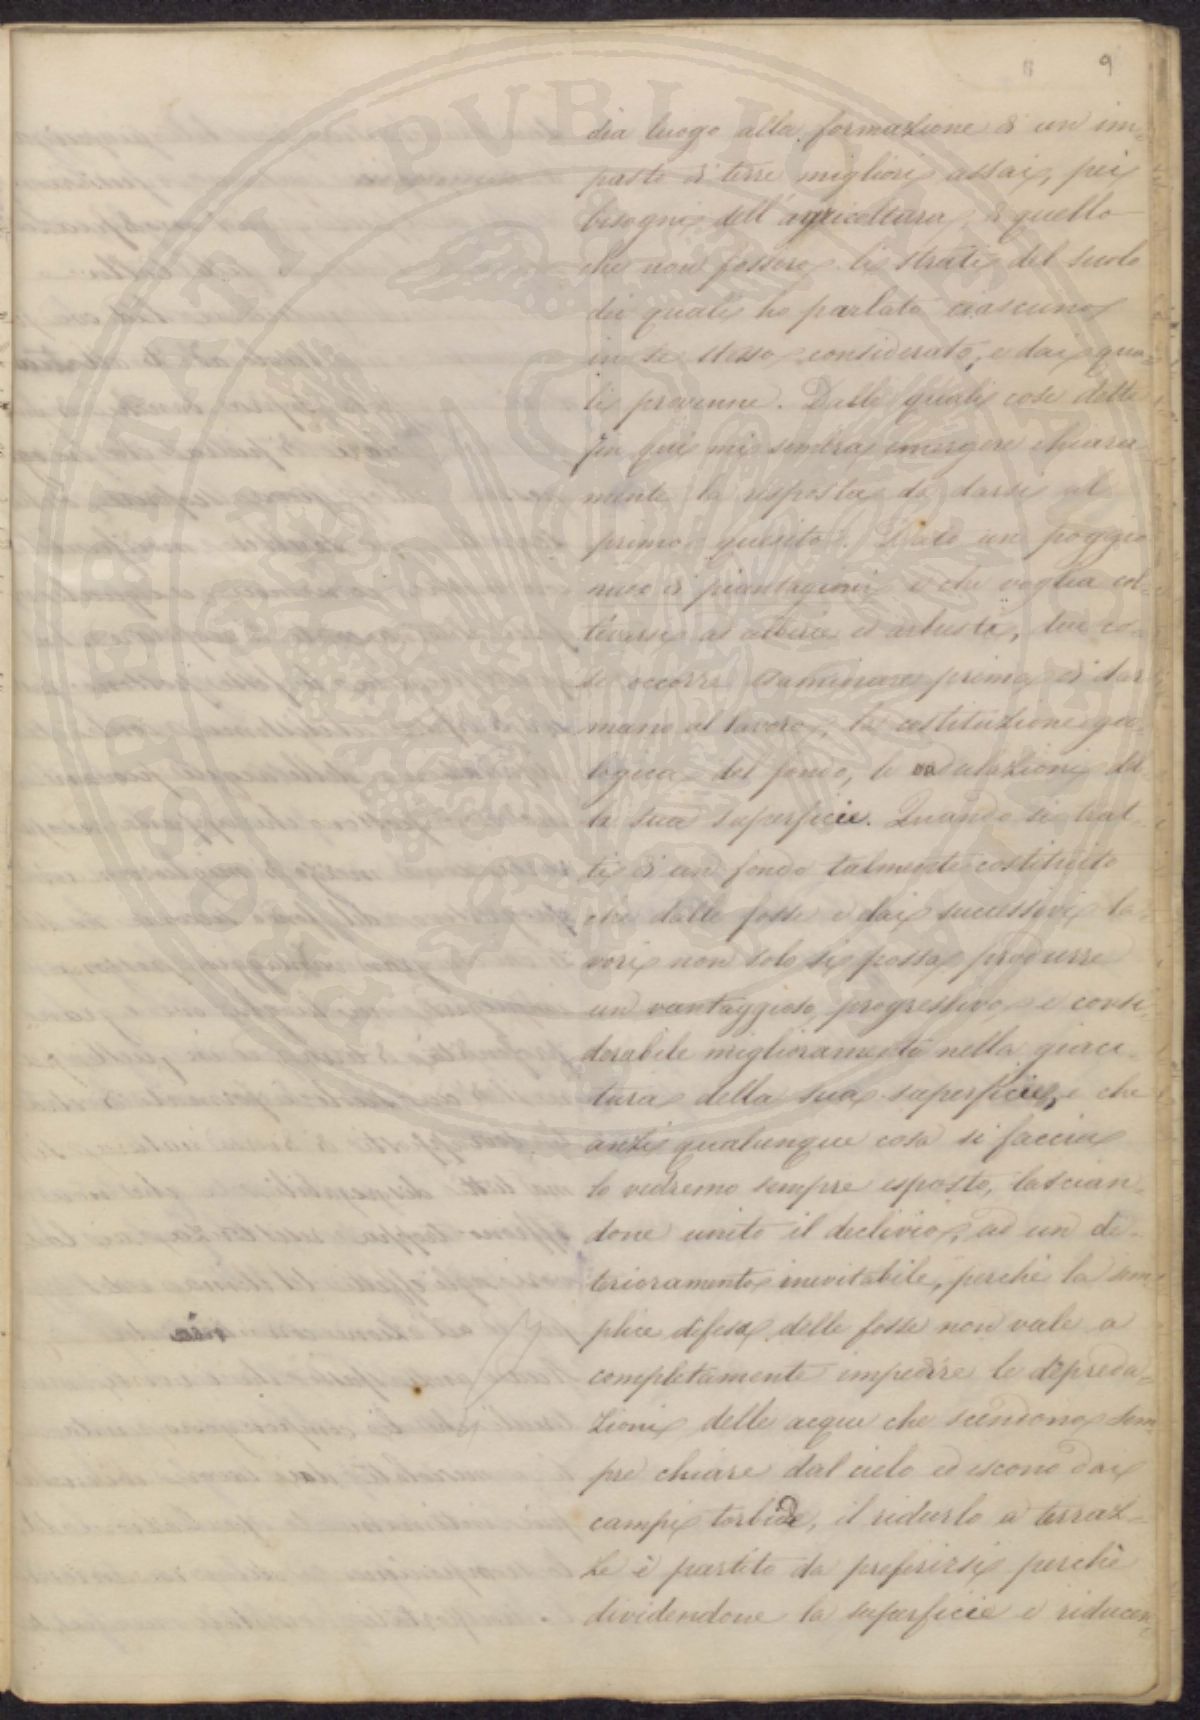 9
dia luogo alla formazione di un im=
pasto di terre migliori assai, pei
bisogni dell'agricoltura, di quello
che non fossero li strati del suolo
dei quali ho parlato ciascuno
in se stesso considerato, e dai qua=
li provenne. Dalle quali cose dette
fin qui mi sembra emergere chiara
mente la risposta da darsi al
primo quesito. Dato un poggio
nudo di piantagioni e che voglia col=
tivarsi ad alberi ed arbusti, due co=
se occorre esaminare prima di dar
mano al lavoro, la costituzione geo=
logica del fondo, le ondulazioni del
la sua superficie. Quando si trat=
ti di un fondo talmente costituito
che dalle fosse e dai successivi la=
vori non solo si possa produrre
un vantaggioso progressivo e consi=
derabile miglioramento nella giaci=
tura della sua superficie, e che
anzi qualunque cosa si faccia
lo vedremo sempre esposto, lascian=
done unito il declivio, ad un de=
terioramento inevitabile, perchè la sem
plice difesa delle fosse non vale a
completamente impedire le depreda=
zioni delle acque che scendono sem
pre chiare dal cielo ed escono dai
campi torbide, il ridurlo a terraz=
ze è partito da preferirsi perchè
dividendone la superficie e riducen=